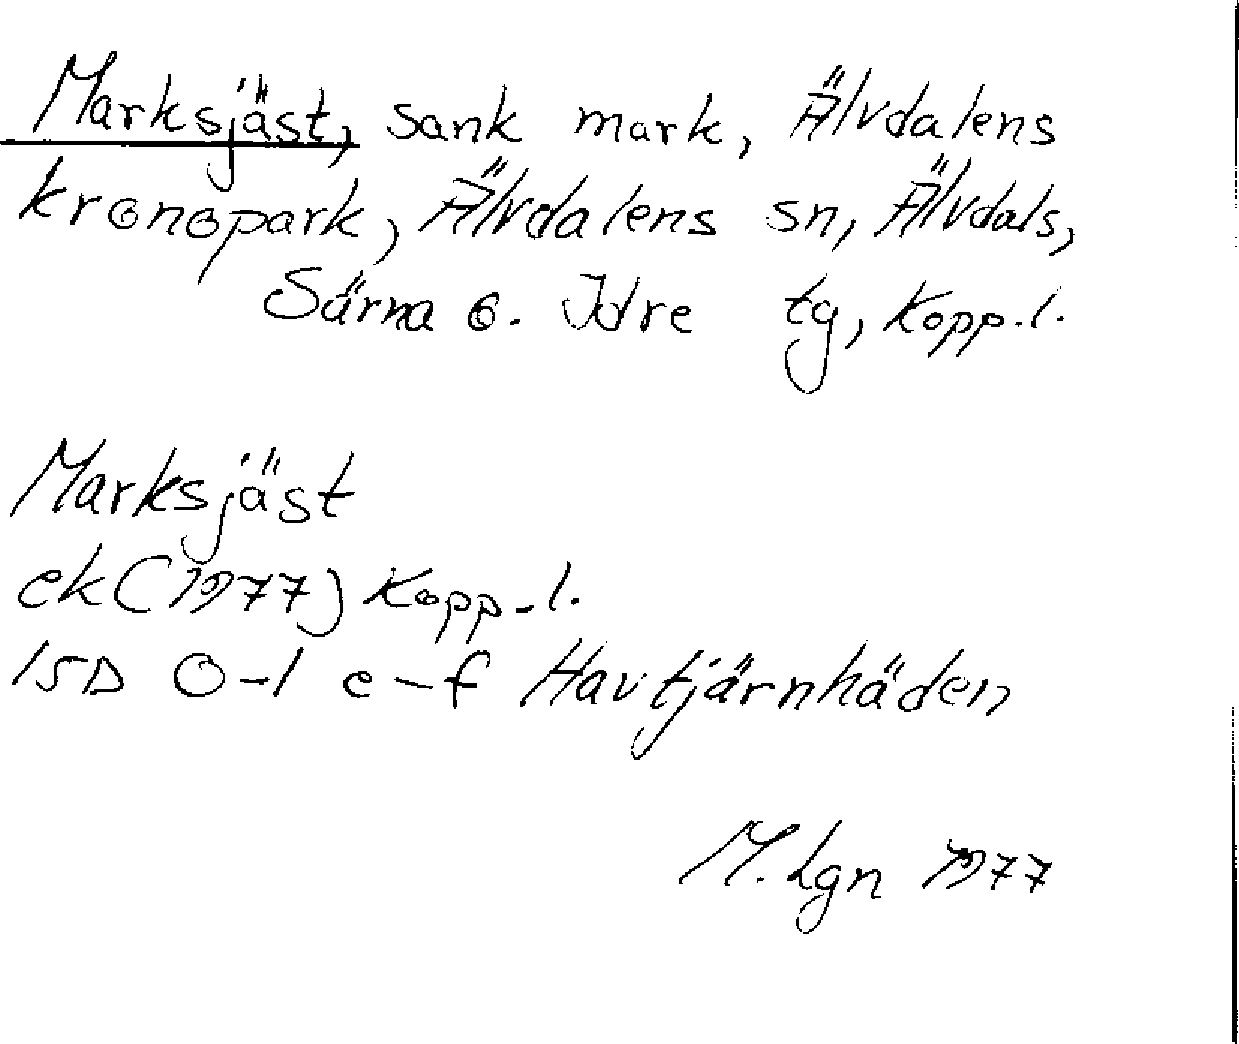 Marksjäst, sank mark, Älvdalens
kronopark, Älvdalens sn, Älvdals,
Särna o. Idre tg, Kopp.l.
Marksjäst
ek (1977) Kopp.l.
15D 0-1 e-f Havtjärnhäden
M. Lgn 1977